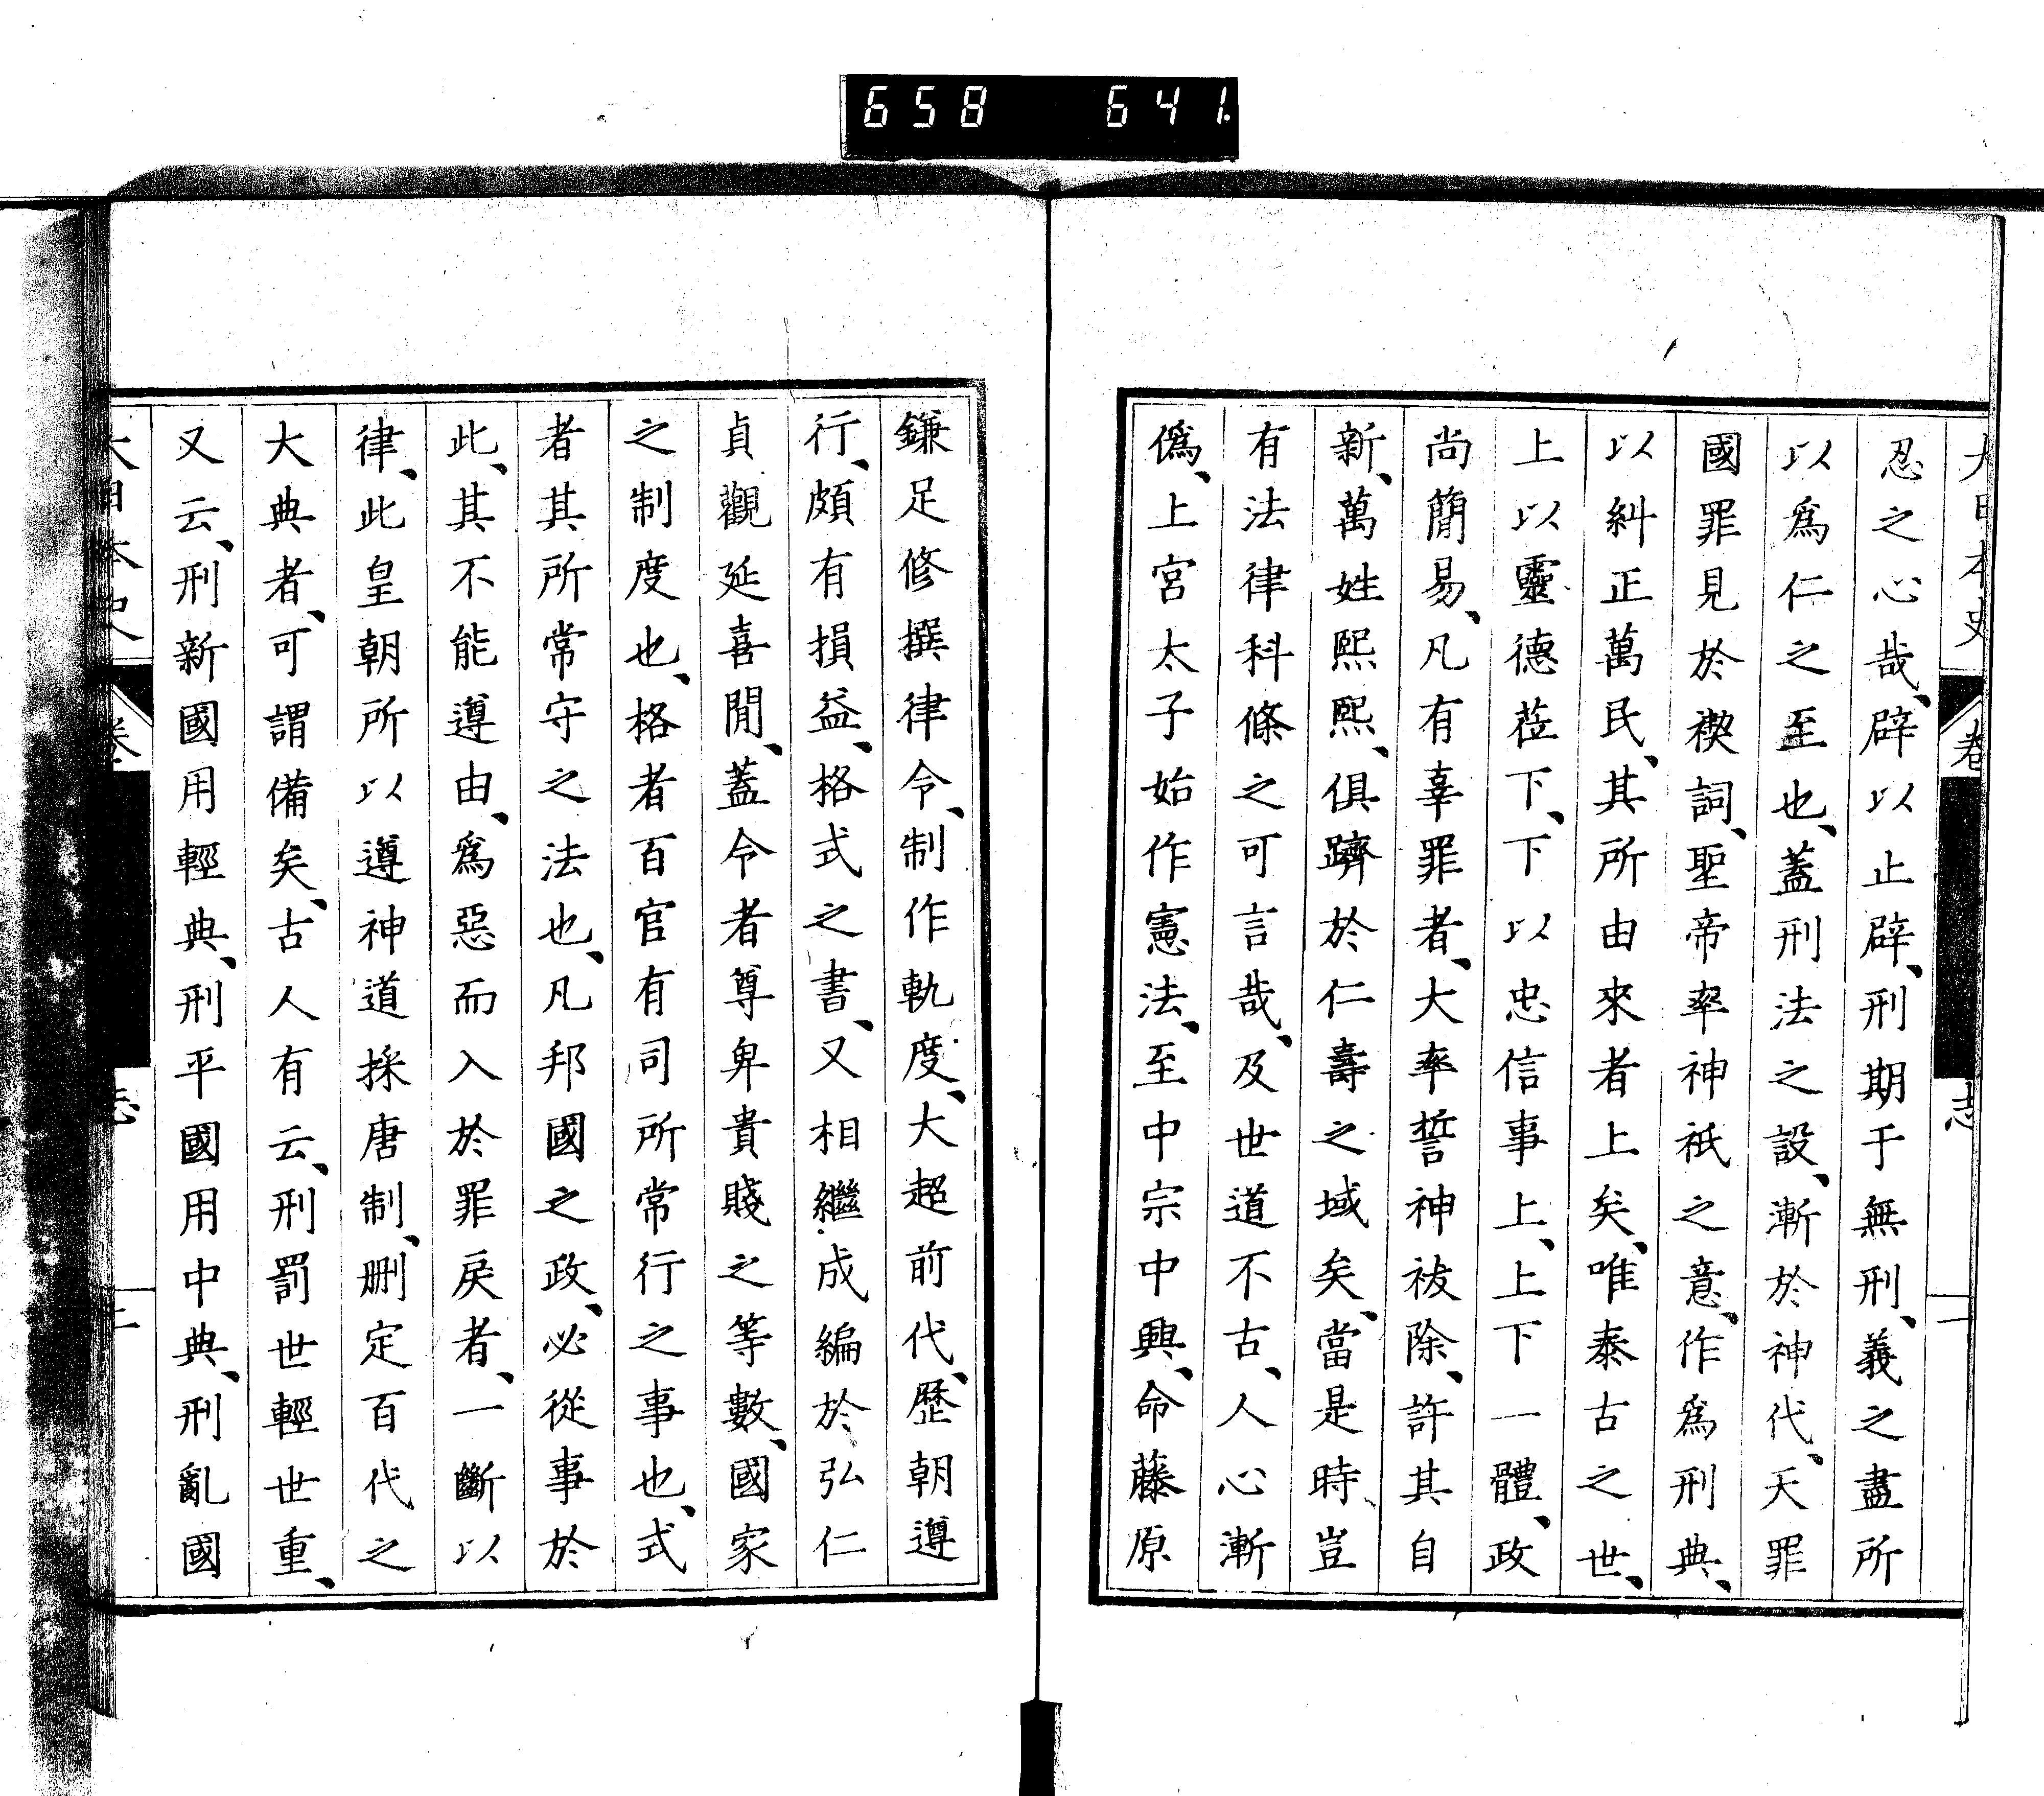 658 641
大日本史 卷 志 一
忍之心哉、辟以止辟、刑期于無刑、義之盡所
以爲仁之至也、蓋刑法之設、漸於神代、天罪
國罪見於禊詞、聖帝率神祇之意、作爲刑典、
以糾正萬民、其所由來者上矣、唯泰古之世、
上以靈德莅下、下以忠信事上、上下一體、政
尚簡易、凡有辜罪者、大率誓神祓除、許其自
新、萬姓熙熙、俱躋於仁壽之域矣、當是時豈
有法律科條之可言哉、及世道不古、人心漸
僞、上宮太子始作憲法、至中宗中興、命藤原
鎌足修撰律令、制作軌度、大超前代、歷朝遵
行、頗有損益、格式之書、又相繼成編於弘仁
貞觀延喜閒、蓋令者尊卑貴賤之等數、國家
之制度也、格者百官有司所常行之事也、式
者其所常守之法也、凡邦國之政、必從事於
此、其不能遵由、爲惡而入於罪戾者、一斷以
律、此皇朝所以遵神道採唐制、删定百代之
大典者、可謂備矣、古人有云、刑罰世輕世重、
又云、刑新國用輕典、刑平國用中典、刑亂國
大日本史 卷 志